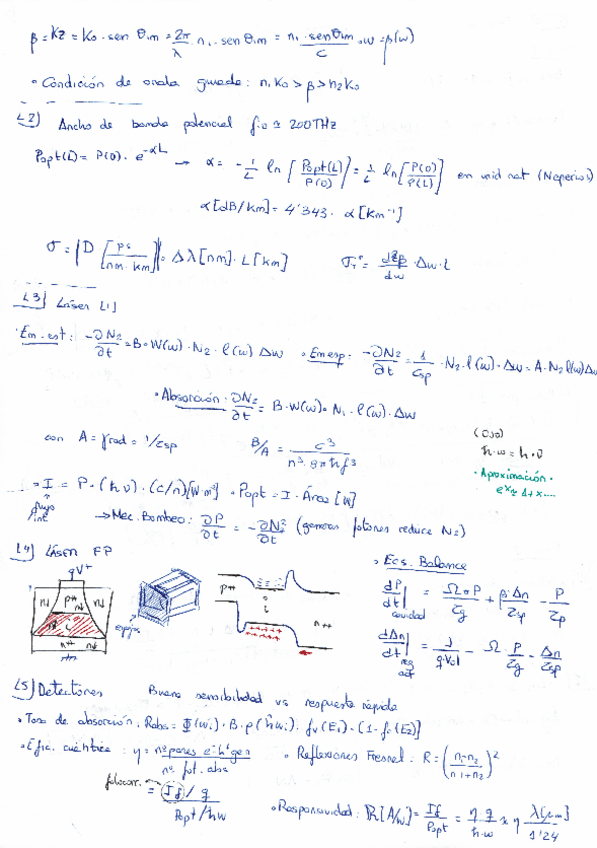 β = Kz = K₀ · sen θim = 2π/λ · n₁ · sen θim = n₁ · sen θim / c · w = β(w)
• Condición de onda guiada: n₁K₀ > β > n₂K₀
L2) Ancho de banda potencial f₀ ≃ 200THz
Popt(L) = P(0) · e^-αL → α = -1/L ln [Popt(L)/P(0)] = 1/L ln [P(0)/P(L)] en unid nat (Neperios)
α[dB/km] = 4'343 · α[km⁻¹]
σ = |D [ps/nm·km]| = Δλ[nm] · L[km] = d²β/dw · Δw · L
L3) Láser [1]
• Em. est: -∂N₂/∂t = B · W(w) · N₂ · l(w) Δw • Em esp: -∂N₂/∂t = 1/τsp · N₂ · l(w) · Δw = A · N₂ l(w) Δw
• Absorción · ∂N₂/∂t = B · W(w) · N₁ · l(w) · Δw
con A = γrad = 1/τsp B/A = c³/n³ · 8π h f³
(Ojo)
ħ·w = h·υ
• Aproximación •
eˣ ≃ 1 + x....
• I = P · (hυ) · (c/n) [W·m²] • Popt = I · Área [W]
flujo int
→ Mec. Bombeo: ∂P/∂t = -∂N₂/∂t (generar fotones reduce N₂)
L4) LÁSER FP
qV+
p++
n↓ n↓
i
n↓ n↓
n++
espejos
p++
i
n++
• Ecs. Balance
dP/dt| cavidad = Ω · P/τg + β·Δn/τsp - P/τp
dΔn/dt| reg act = J/q·Vol - Ω · P/τg - Δn/τsp
L5) Detectores Buena sensibilidad vs respuesta rápida
• Tasa de absorción: Rabs = Φ(wi) · B · ρ(ħwi) · fv(E₁) · (1 - fc(E₂))
• Efic. cuántica: η = nº pares e⁻h⁺ gen / nº fot. abs • Reflexiones Fresnel: R = (n₁-n₂ / n₁+n₂)²
fotocorr. = If / q / Popt/ħw
• Responsividad: R[A/W] = If/Popt = η q/ħ·w ≈ η λ[μm]/1'24